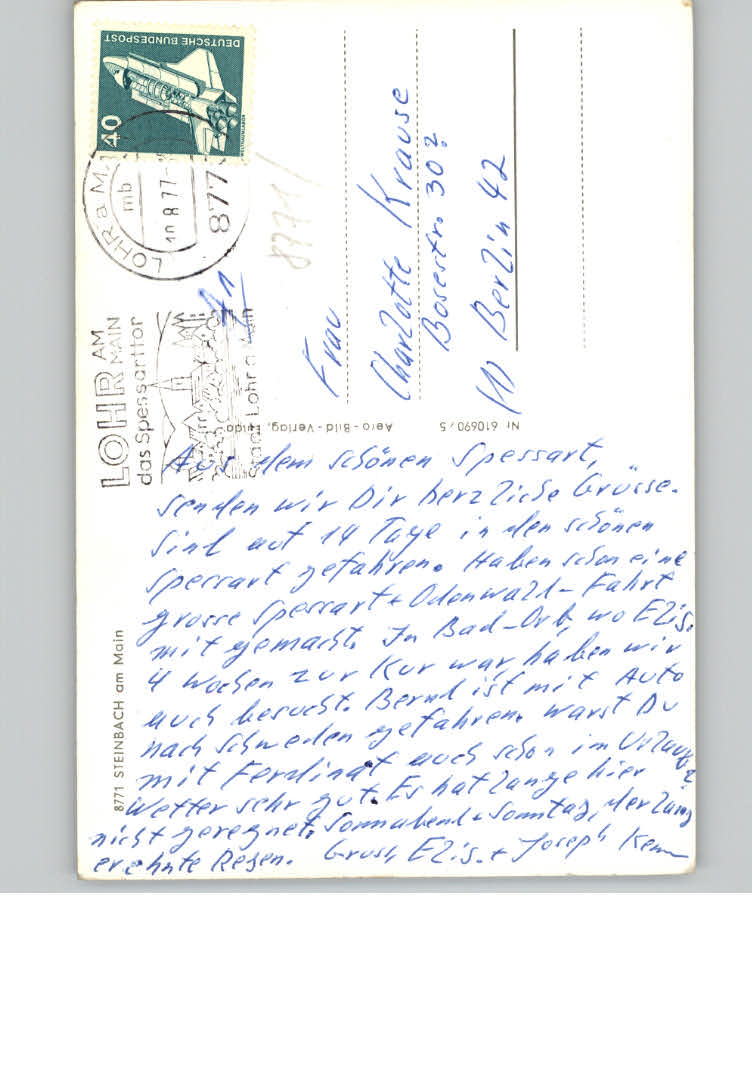 DEUTSCHE BUNDESPOST
40
LOHR a MA
mb
10.8.77
877
LOHR AM MAIN
das Spessarttor
Stadt Lohr a Main
8771
Frau
Charlotte Krause
Bosestr. 30?
(1) Berlin 42
Aero-Bild-Verlag, Fulda
Nr. 610690/5
8771 STEINBACH am Main
Aus dem schönen Spessart,
senden wir Dir herzliche Grüsse.
Sind auf 14 Tage in den schönen
Spessart gefahren. Haben schon eine
grosse Spessart + Odenwald-Fahrt
mit gemacht. In Bad-Orb, wo Elis.
4 Wochen zur Kur war, haben wir
auch besucht. Bernd ist mit Auto
nach Schweden gefahren. Warst Du
mit Ferdinat auch schon im Urlaub?
Wetter sehr gut. Es hat lange hier
nicht geregnet. Sonnabend + Sonntag, der lang
erzehnte Regen. Gruss, Elis. + Joseph